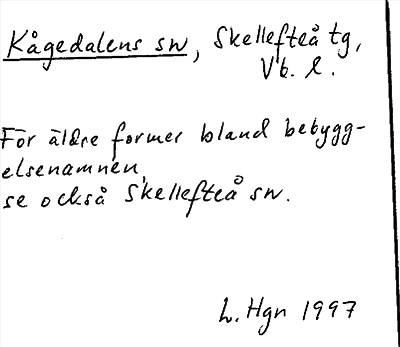 Kågedalens sn, Skellefteå tg,
Vb. l.
För äldre former bland bebygg-
elsenamnen,
se också Skellefteå sn.
L. Hgn 1997